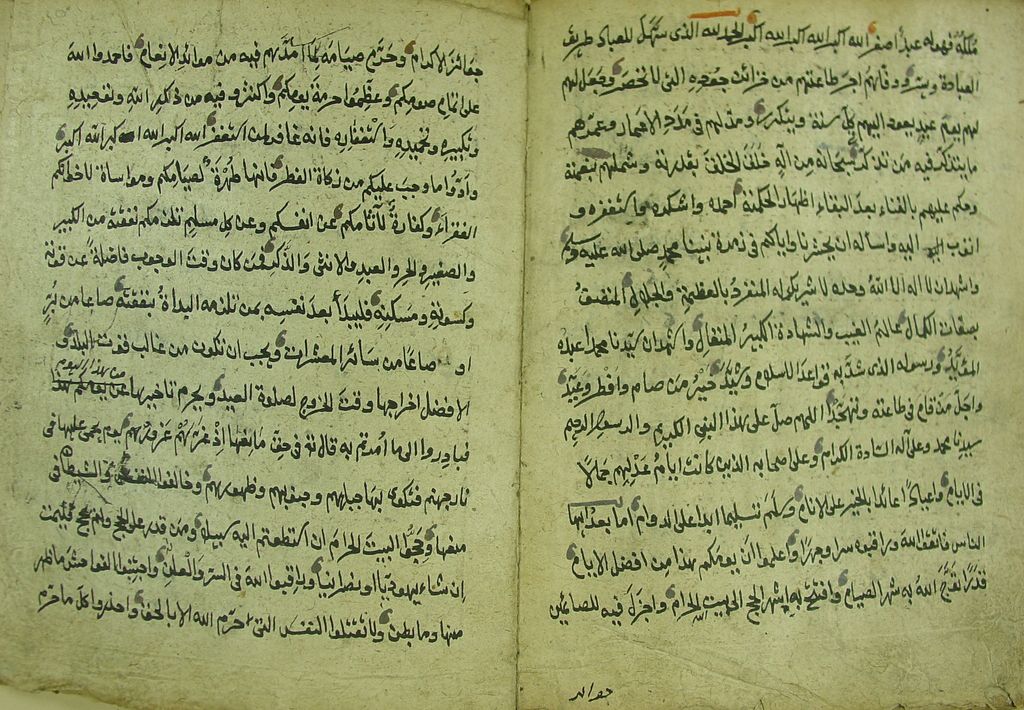 ملكه فهو له عبد اصغر الله اكبر الله اكبر الله اكبر الحمد لله الذى سهّل للعباد طريق
العبادة ويسر ووفاهم اجر طاعتهم من خزائن جوده التى لا تحصر وجعل لهم
يوم عيد يعود اليهم فى كل سنة ويتكرر ومد لهم فى مدد الاعمار وعمّرهم
ما يتذكر فيه من تذكر سبحانه من اله خلق الخلق بقدرته وشملهم بنعمته
وحكم عليهم بالفناء بعد البقاء اظهار الحكمته احمده واشكره واستغفره و
اتوب اليه واساله ان يحشرنا واياكم فى زمرة نبينا محمد صلى الله عليه وسلم
واشهد ان لا اله الا الله وحده لا شريك له المنفرد بالعظمة والجلال المتصف
بصفات الكمال عالم الغيب والشهادة الكبير المتعال واشهد ان سيدنا محمدا عبده
ورسوله الذى شد به قواعد الاسلام وشيّد خير من صام وافطر وعيّد
واجل من قام فى طاعته وتهجد اللهم صل على هذا النبى الكريم والرسول الرحيم
سيدنا محمد وعلى آله السادة الكرام وعلى صحابه الذين كانت ايام عدلهم جمالا
فى الايام واعيادًا عائدا بالخير على الانام وسلم تسليما ابدا على الدوام اما بعد ايها
الناس فاتقوا الله وراقبوه سرا وجهرا واعلموا ان يومكم هذا من افضل الايام
قدرًا توّج الله به شهر الصيام وافتتح به اشهر الحج الى بيت الله الحرام واجزل فيه للصائمين
جوائز
جوائز الاكرام وحرّم صيامه لما امدّهم فيه من موائد الانعام فاحمدوا الله
على اتمام صومكم وعظموا حرمة يومكم واكثروا فيه من ذكر الله وتمجيده
وتكبيره وتحميده واستغفاره فانه غافر لمن استغفر الله اكبر الله اكبر الله اكبر
وادّوا ما وجب عليكم من زكاة الفطر فانها طهرة لصيامكم ومواساة لاخوانكم
الفقراء وكفارة لآثامكم عن انفسكم وعن كل مسلم تلزمكم نفقته من الكبير
والصغير والحر والعبد والانثى والذكر فمن كان وقت الوجوب فاضلة عن قوته
وكسوته ومسكنه فليبدأ بعد نفسه بمن تلزمه البداة بنفقته صاعا من بُرّ
او صاعا من سائر المعشرات ويجب ان تكون من غالب قوت البلد و
الافضل اخراجها وقت الخروج لصلوة العيد ويحرم تاخيرها عن يومكم هذا
من هذا اليوم
فبادروا الى ما امرتم به قال الله فى حق مانعها اذ غرهم غرورهم يوم يحمى عليها فى
نار جهنم فتكوى بها جباههم وجنوبهم وظهورهم وخالفوا الشيطان فى
منعها وحجوا البيت الحرام ان استطعتم اليه سبيلا ومن قدر على الحج ولم يحج فليمت
ان شاء يهوديّا او نصرانيا وراقبوا الله فى السر والعلن واجتنبوا الفواحش ما ظهر
منها وما بطن ولا تقتلوا النفس التى حرّم الله الا بالحق واحذروا كل ما حرم